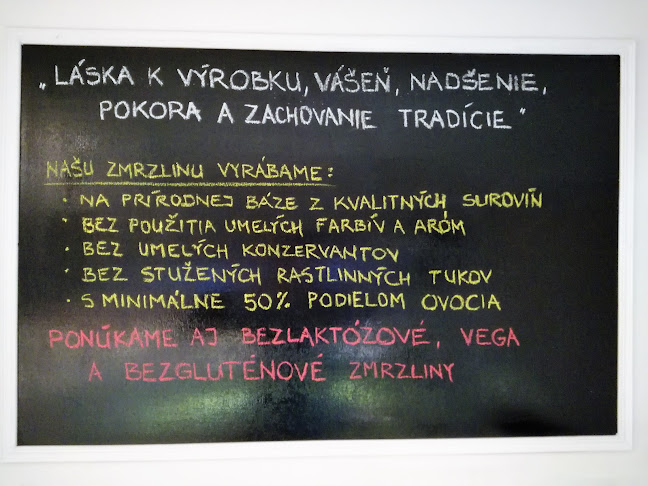 „LÁSKA K VÝROBKU, VÁŠEŇ, NADŠENIE,
POKORA A ZACHOVANIE TRADÍCIE"
NAŠU ZMRZLINU VYRÁBAME:
· NA PRÍRODNEJ BÁZE Z KVALITNÝCH SUROVÍN
· BEZ POUŽITIA UMELÝCH FARBÍV A ARÓM
· BEZ UMELÝCH KONZERVANTOV
· BEZ STUŽENÝCH RASTLINNÝCH TUKOV
· S MINIMÁLNE 50% PODIELOM OVOCIA
PONÚKAME AJ BEZLAKTÓZOVÉ, VEGA
A BEZGLUTÉNOVÉ ZMRZLINY